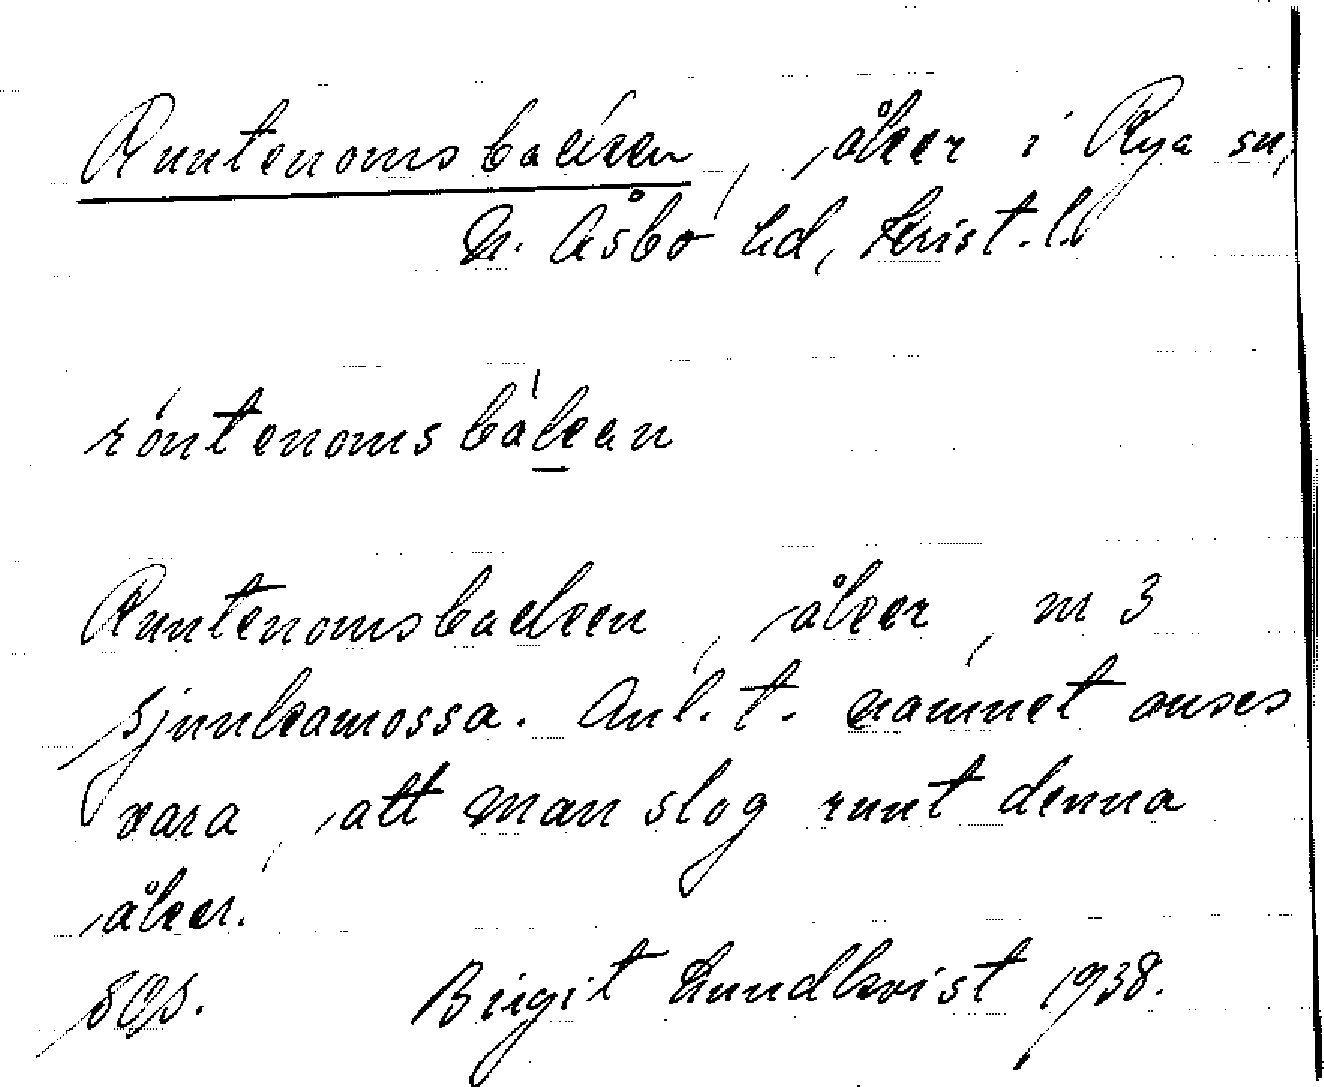 Runtenomsbacken, åker i Rya sn,
N. Åsbo hd, Krist. l.
röntenomsbákan
Runtenomsbacken, åker, m 3
Sjunkamossa. Anl. t. namnet anses
vara, att man slog runt denna
åker.
Birgit Lundkvist 1938.